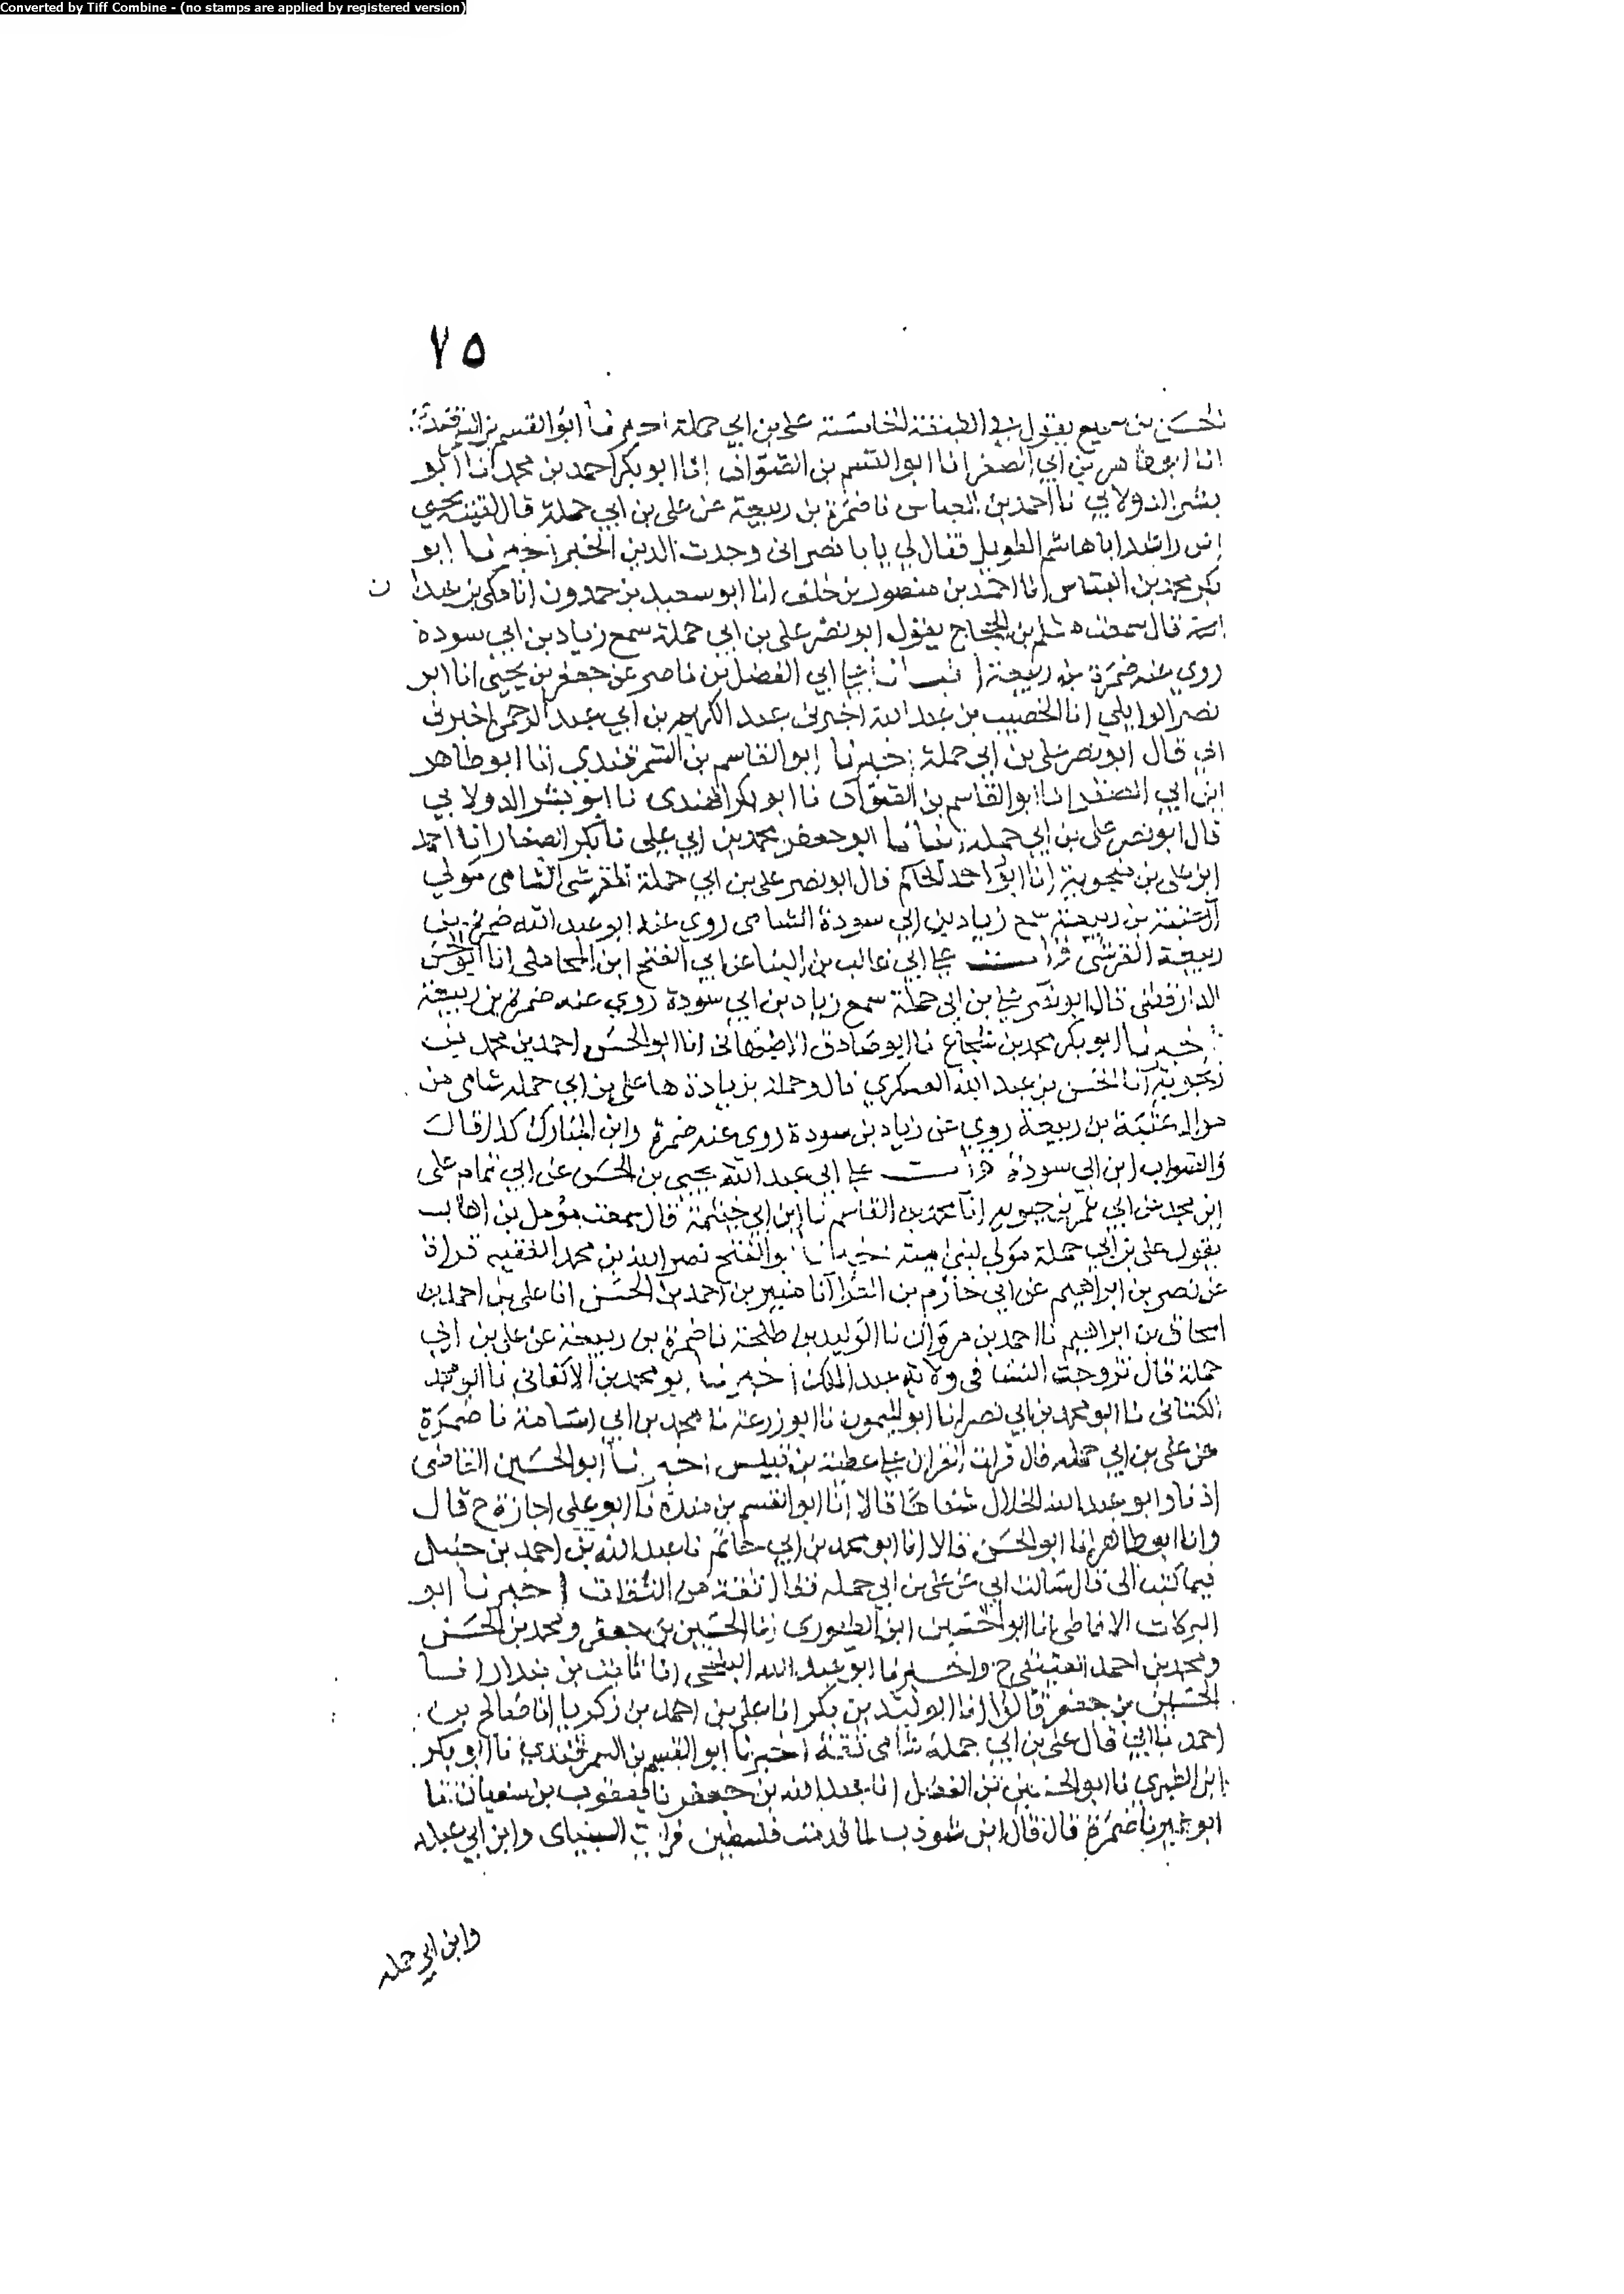 Converted by Tiff Combine - (no stamps are applied by registered version)
٧٥
الحسن بن سميع يقول في الطبقة الخامسة علي بن ابي حملة اخبرنا ابو القسم بن السمرقندي
انا ابو طاهر بن ابي الصقر انا ابو القسم بن الصواف انا ابو بكر احمد بن محمد نا ابو
بشر الدولابي نا احمد بن العباس نا ضمرة بن ربيعة عن علي بن ابي حملة قال لقيني يحيى
ابن راشد ابا هاشم الطويل فقال لي يا با نصر اني وجدت الدين الخبر اخبرنا ابو
بكر محمد بن العباس انا احمد بن منصور بن خلف انا ابو سعيد بن حمدون انا مكي بن عبدان
قال سمعت مسلم بن الحجاج يقول ابو نصر علي بن ابي حملة سمع زياد بن ابي سودة
روى عنه ضمرة بن ربيعة قرات على ابي الفضل بن ناصر عن جعفر بن يحيى انا ابو
نصر الوايلي انا الخصيب بن عبد الله اخبرني عبد الكريم بن ابي عبد الرحمن اخبرني
ابي قال ابو نصر علي بن ابي حملة اخبرنا ابو القاسم بن السمرقندي انا ابو طاهر
ابن ابي الصقر انا ابو القاسم بن الصواف نا ابو بكر المهندس نا ابو بشر الدولابي
قال ابو نصر علي بن ابي حملة انبانا ابو جعفر محمد بن ابي علي نا بكر الصفار انا احمد
ابن علي بن منجوية انا ابو احمد الحاكم قال ابو نصر علي بن ابي حملة القرشي الشامي مولى
آل عتبة بن ربيعة سمع زياد بن ابي سودة الشامي روى عنه ابو عبد الله ضمرة بن
ربيعة القرشي قرات على ابي غالب بن البنا عن ابي الفتح ابن المحاملي انا ابو الحسن
الدارقطني قال ابو نصر علي بن ابي حملة سمع زياد بن ابي سودة روى عنه ضمرة بن ربيعة
اخبرنا ابو بكر محمد بن شجاع نا ابو صادق الاصفهاني انا ابو الحسن احمد بن محمد بن
زنجوية انا الحسن بن عبد الله العسكري قال وحملة بزيادة ها علي بن ابي حملة شامي من
موالي عتبة بن ربيعة روى عن زياد بن سودة روى عنه ضمرة وابن المبارك كذا قال
والصواب ابن ابي سودة قرات على ابي عبد الله يحيى بن الحسن عن ابي تمام علي
ابن محمد عن ابي عمر بن حيويه انا محمد بن القاسم نا ابن ابي خيثمة قال سمعت مؤمل بن اهاب
يقول علي بن ابي حملة مولى لبني امية اخبرنا ابو الفتح نصر الله بن محمد الفقيه قراة
عن نصر بن ابراهيم عن ابي خازم بن الفرا انا منير بن احمد بن الحسن انا علي بن احمد بن
اسحاق بن ابراهيم نا احمد بن مروان نا الوليد بن طلحة نا ضمرة بن ربيعة عن علي بن ابي
حملة قال تزوجت النسا في ولاية عبد الملك اخبرنا ابو محمد بن الاكفاني نا ابو محمد
الكتاني نا ابو محمد بن ابي نصر انا ابو الميمون نا ابو زرعة نا محمد بن ابي اسامة نا ضمرة
عن علي بن ابي حمله قال قرات القران على عطية بن قيس اخبرنا ابو الحسين القاضي
اذنا وابو عبد الله الخلال شفاها قالا انا ابو القسم بن مندة نا ابو علي اجازة ح قال
وانا ابو طاهر انا ابو الحسن قالا انا ابو محمد بن ابي حاتم نا عبد الله بن احمد بن حنبل
فيما كتب الي قال سالت ابي عن علي بن ابي حمله فقال ثقة من الثقات اخبرنا ابو
البركات الانماطي انا ابو الحسين ابن الطيوري انا الحسين بن جعفر ومحمد بن الحسن
ومحمد بن احمد العتيقي ح واخبرنا ابو عبد الله البلخي انا ثابت بن بندار انا
الحسين بن جعفر قالوا انا الوليد بن بكر انا علي بن احمد بن زكريا انا صالح بن
احمد نا ابي قال علي بن ابي حملة شامي ثقة اخبرنا ابو القسم بن السمرقندي نا ابو بكر
ابن الطبري نا ابو الحسين بن الفضل انا عبد الله بن جعفر نا يعقوب بن سفيان نا
ابو عمير نا ضمرة قال قال ابن شوذب لما قدمت فلسطين فرايت السيباني وابن ابي عبله
وابن ابي حمله